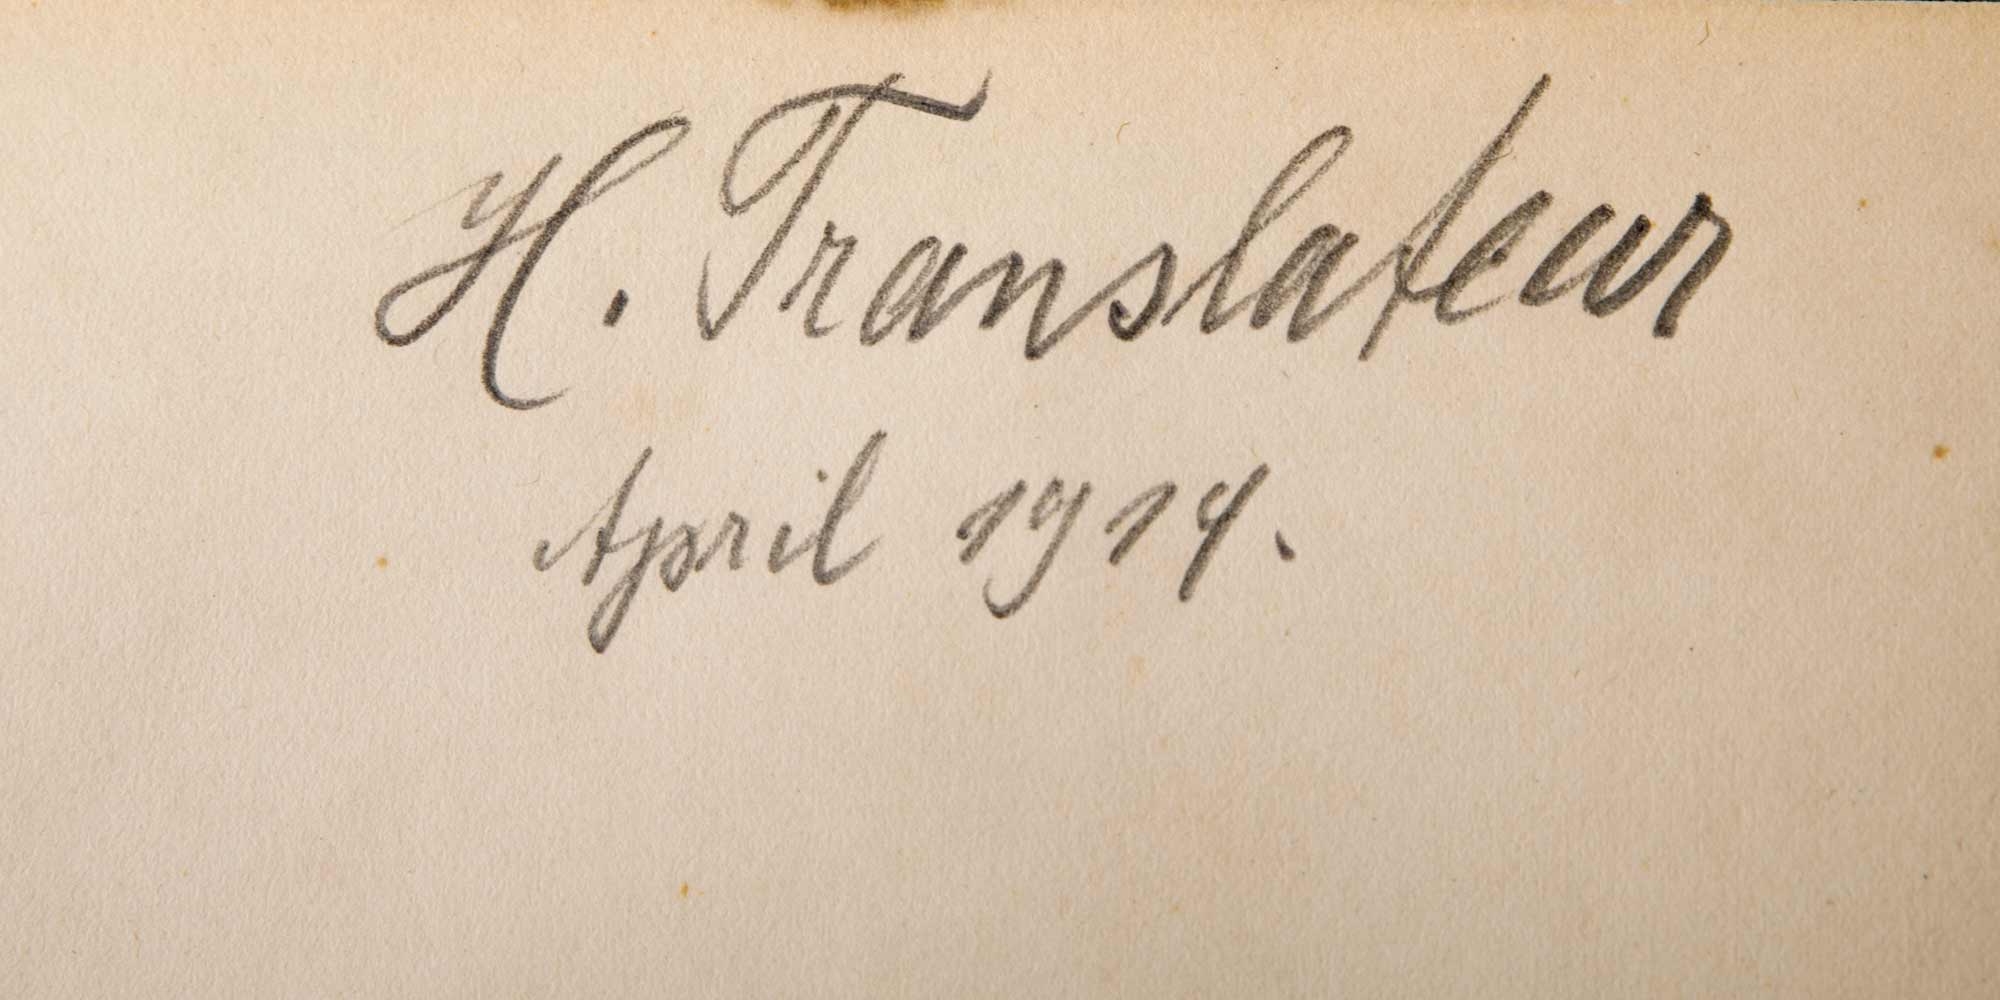 H. Translateur
April 1914.